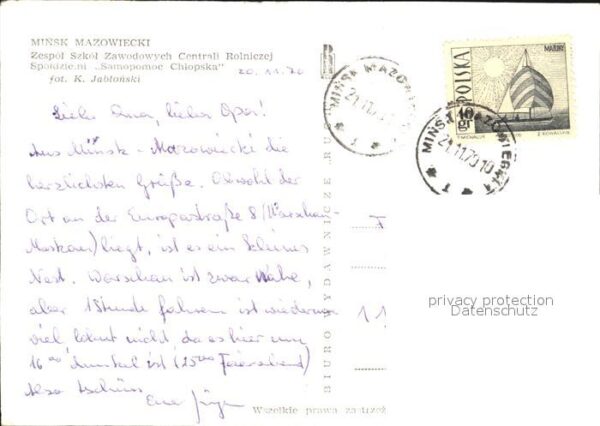 MIŃSK MAZOWIECKI
Zespół Szkół Zawodowych Centrali Rolniczej
Spółdzielni „Samopomoc Chłopska"
fot. K. Jabłoński
20.11.70
Liebe Oma, lieber Opa!
Aus Mińsk-Mazowiecki die
herzlichsten Grüße. Obwohl der
Ort an der Europastraße 8 (Warschau-
Moskau) liegt, ist es ein kleines
Nest. Warschau ist zwar nahe,
aber 1 Stunde fahren ist wiederum
viel, lohnt nicht, da es hier um
16 00 dunkel ist (15 00 Feierabend)
Also tschüss
Euer Jürgen
Wszelkie prawa zastrzeż
BIURO WYDAWNICZE RUC
MIŃSK MAZOWIE
21.11.70
MIŃSK MAZOWIECKI
21.11.70.10
1
POLSKA
MAZURY
10 gr
privacy protection
Datenschutz